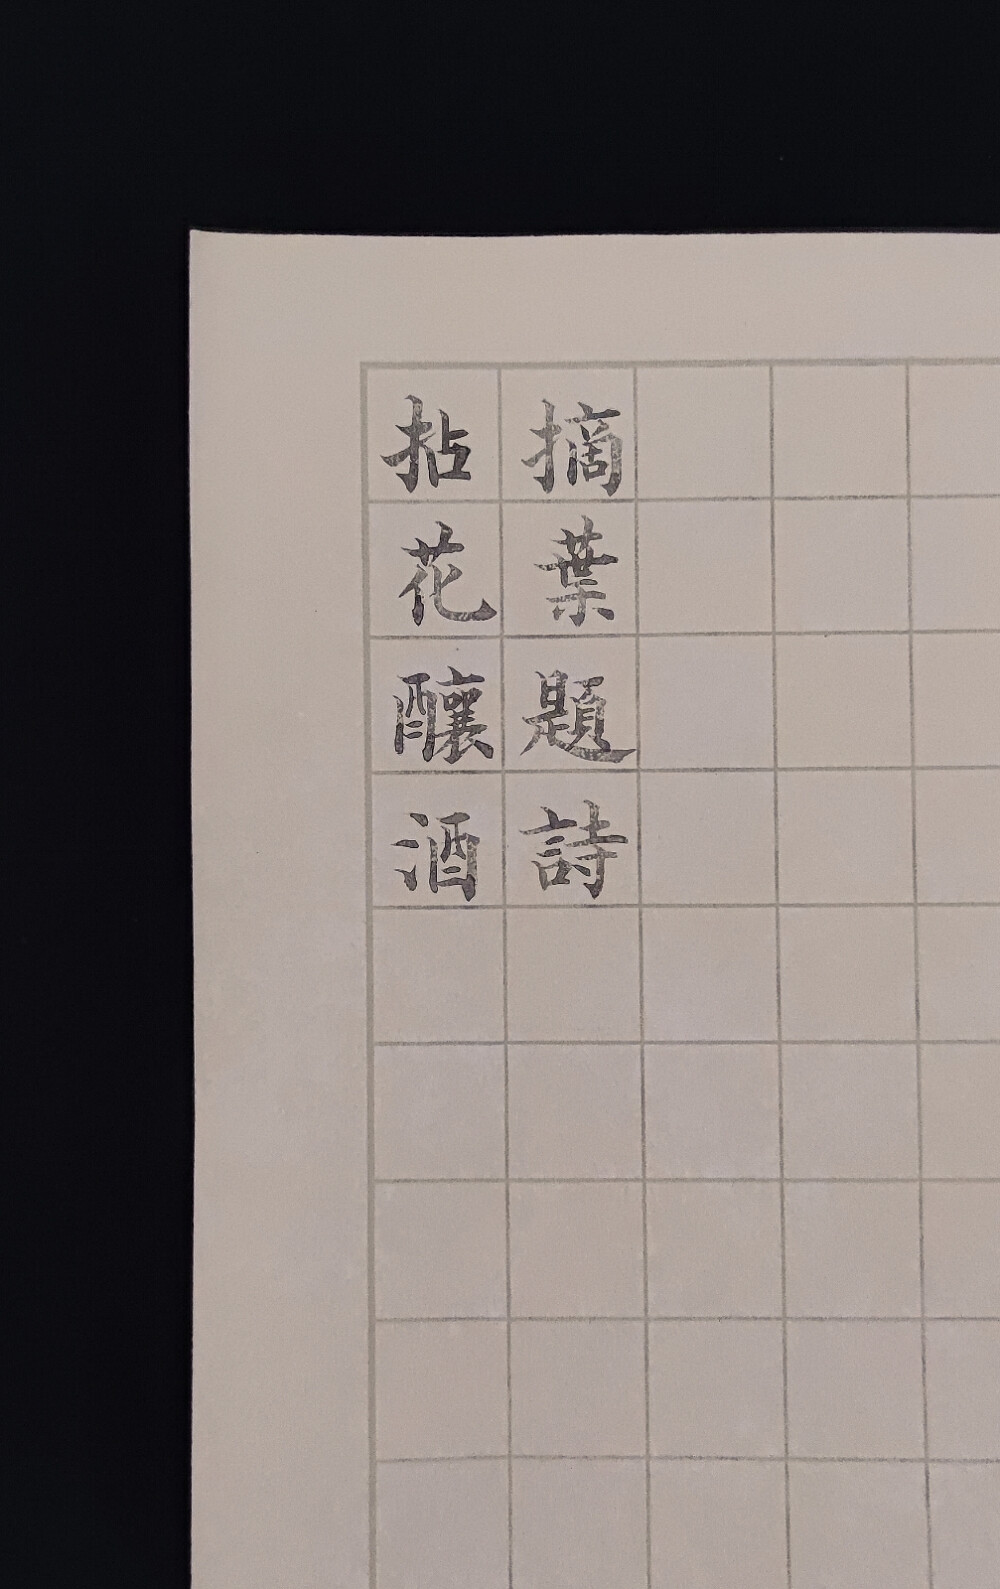 拈花釀酒
摘葉題詩